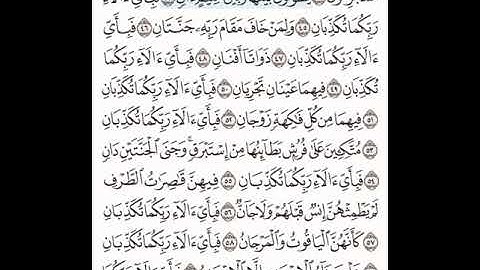 رَبِّكُمَا تُكَذِّبَانِ ٤٥ وَلِمَنْ خَافَ مَقَامَ رَبِّهِۦ جَنَّتَانِ ٤٦ فَبِأَيِّ
ءَالَآءِ رَبِّكُمَا تُكَذِّبَانِ ٤٧ ذَوَاتَآ أَفْنَانٍ ٤٨ فَبِأَيِّ ءَالَآءِ رَبِّكُمَا
تُكَذِّبَانِ ٤٩ فِيهِمَا عَيْنَانِ تَجْرِيَانِ ٥٠ فَبِأَيِّ ءَالَآءِ رَبِّكُمَا تُكَذِّبَانِ
٥١ فِيهِمَا مِن كُلِّ فَٰكِهَةٍ زَوْجَانِ ٥٢ فَبِأَيِّ ءَالَآءِ رَبِّكُمَا تُكَذِّبَانِ
٥٣ مُتَّكِـِٔينَ عَلَىٰ فُرُشٍۭ بَطَآئِنُهَا مِنْ إِسْتَبْرَقٍ ۚ وَجَنَى ٱلْجَنَّتَيْنِ دَانٍ
٥٤ فَبِأَيِّ ءَالَآءِ رَبِّكُمَا تُكَذِّبَانِ ٥٥ فِيهِنَّ قَٰصِرَٰتُ ٱلطَّرْفِ
لَمْ يَطْمِثْهُنَّ إِنسٌ قَبْلَهُمْ وَلَا جَآنٌّ ٥٦ فَبِأَيِّ ءَالَآءِ رَبِّكُمَا تُكَذِّبَانِ
٥٧ كَأَنَّهُنَّ ٱلْيَاقُوتُ وَٱلْمَرْجَانُ ٥٨ فَبِأَيِّ ءَالَآءِ رَبِّكُمَا تُكَذِّبَانِ